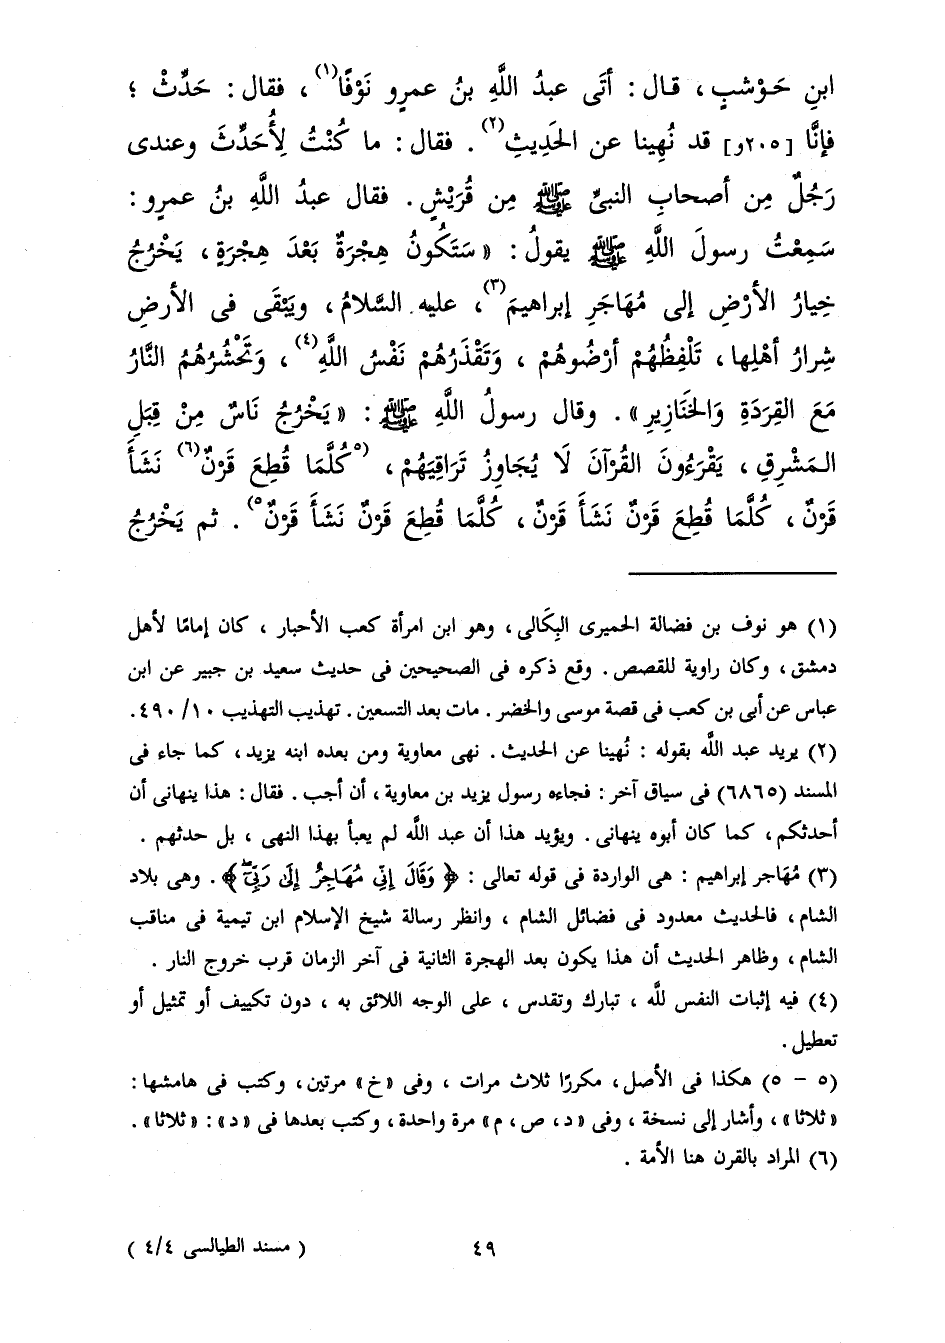 ابنِ حَوْشبٍ، قال: أتَى عبدُ اللَّهِ بنُ عمرٍو نَوْفًا(١)، فقال: حَدِّثْ؛
فإنَّا [٢٠٥و] قد نُهِينا عن الحَدِيثِ(٢). فقال: ما كُنْتُ لِأُحَدِّثَ وعندى
رَجُلٌ مِن أصحابِ النبىِّ ﷺ مِن قُرَيْشٍ. فقال عبدُ اللَّهِ بنُ عمرٍو:
سَمِعْتُ رسولَ اللَّهِ ﷺ يقولُ: «سَتَكُونُ هِجْرَةٌ بَعْدَ هِجْرَةٍ، يَخْرُجُ
خِيارُ الأرْضِ إلى مُهَاجَرِ إبراهيمَ(٣)، عليه السَّلامُ، ويَبْقَى فى الأرضِ
شِرارُ أهْلِها، تَلْفِظُهُمْ أرْضُوهُمْ، وَتَقْذَرُهُمْ نَفْسُ اللَّهِ(٤)، وَتَحْشُرُهُمُ النَّارُ
مَعَ القِرَدَةِ وَالخَنَازِيرِ». وقال رسولُ اللَّهِ ﷺ: «يَخْرُجُ نَاسٌ مِنْ قِبَلِ
المَشْرِقِ، يَقْرَءُونَ القُرْآنَ لَا يُجَاوِزُ تَرَاقِيَهُمْ، (٥كُلَّمَا قُطِعَ قَرْنٌ(٦) نَشَأَ
قَرْنٌ، كُلَّمَا قُطِعَ قَرْنٌ نَشَأَ قَرْنٌ، كُلَّمَا قُطِعَ قَرْنٌ نَشَأَ قَرْنٌ٥). ثم يَخْرُجُ
(١) هو نوف بن فضالة الحميرى البِكَالى، وهو ابن امرأة كعب الأحبار، كان إمامًا لأهل
دمشق، وكان راوية للقصص. وقع ذكره فى الصحيحين فى حديث سعيد بن جبير عن ابن
عباس عن أبى بن كعب فى قصة موسى والخضر. مات بعد التسعين. تهذيب التهذيب ١٠/ ٤٩٠.
(٢) يريد عبد اللَّه بقوله: نُهينا عن الحديث. نهى معاوية ومن بعده ابنه يزيد، كما جاء فى
المسند (٦٨٦٥) فى سياق آخر: فجاءه رسول يزيد بن معاوية، أن أجب. فقال: هذا ينهانى أن
أحدثكم، كما كان أبوه ينهانى. ويؤيد هذا أن عبد اللَّه لم يعبأ بهذا النهى، بل حدثهم.
(٣) مُهَاجر إبراهيم: هى الواردة فى قوله تعالى: ﴿وَقَالَ إِنِّي مُهَاجِرٌ إِلَىٰ رَبِّيٓ﴾. وهى بلاد
الشام، فالحديث معدود فى فضائل الشام، وانظر رسالة شيخ الإسلام ابن تيمية فى مناقب
الشام، وظاهر الحديث أن هذا يكون بعد الهجرة الثانية فى آخر الزمان قرب خروج النار.
(٤) فيه إثبات النفس للَّه، تبارك وتقدس، على الوجه اللائق به، دون تكييف أو تمثيل أو
تعطيل.
(٥ - ٥) هكذا فى الأصل، مكررًا ثلاث مرات، وفى «خ» مرتين، وكتب فى هامشها:
«ثلاثا»، وأشار إلى نسخة، وفى «د، ص، م» مرة واحدة، وكتب بعدها فى «د»: «ثلاثا».
(٦) المراد بالقرن هنا الأمة.
٤٩
(مسند الطيالسى ٤/٤)